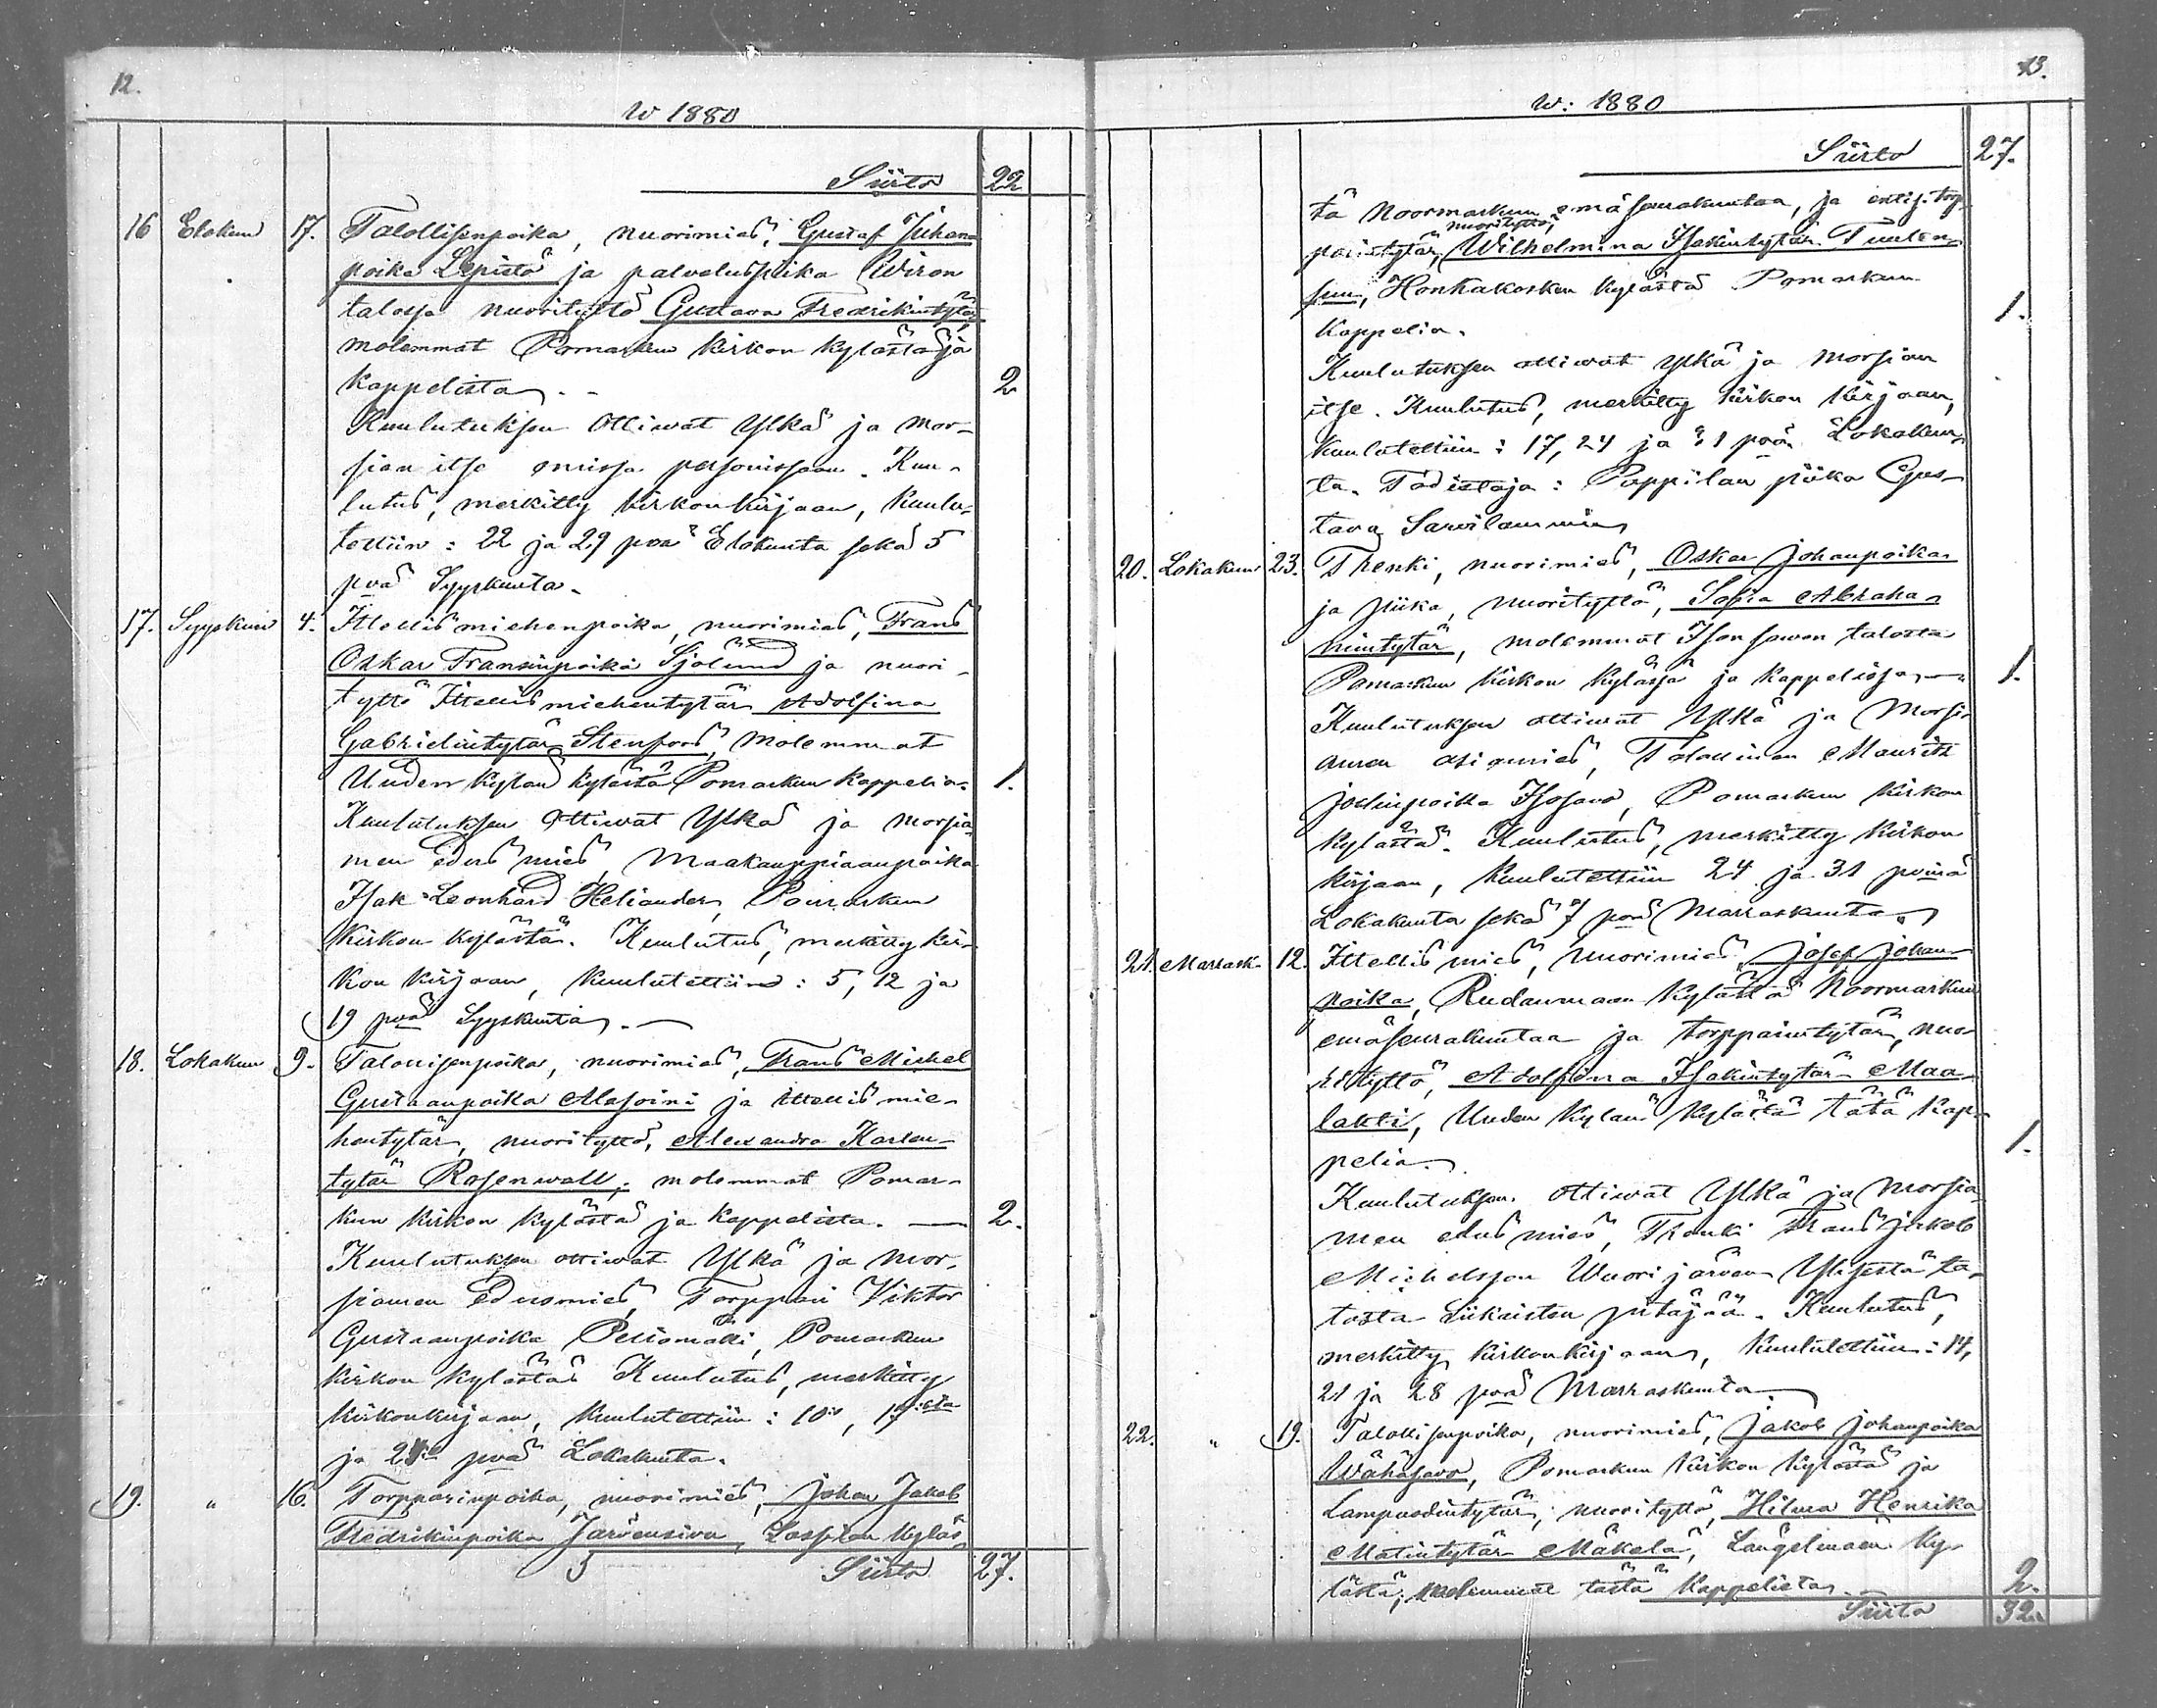 12.
W 1880
Siirto 22
16 Elokuu 17. Talollisenpoika, nuorimies, Gustaf Juhan
poika Lepistö ja palveluspiika Wiron
talossa nuorityttö Gustava Fredrikintytär
molemmat Pomarkun Kirkon Kylästä ja
Kappelista. - 2
Kuulutuksen ottiwat Ylkä ja Mor-
sian itse omissa personissaan. Kuu-
lutus, merkitty kirkonkirjaan, Kuulu-
tettiin: 22 ja 29 pvä Elokuuta sekä 5
pvä Syyskuuta.
17. Syyskuu 4. Ittellismiehenpoika, nuorimies, Frans
Oskar Fransinpoika Sjölund ja nuori-
tyttö Ittellismiehentytär Adolfina
Gabrielintytär Stenfors, molemmat
Uuden kylän kylästä Pomarkun Kappelia. 1.
Kuulutuksen ottiwat Ylkä ja morsia
men edusmies, Maakauppiaanpoika
Isak Leonhard Heliander, Pomarkun
Kirkon kylästä. Kuulutus, merkitty Kir-
kon Kirjaan, kuulutettiin: 5, 12 ja
19 pvä Syyskuuta. —
18. Lokakuu 9. Talollisenpoika, nuorimies, Frans Mickel
Gustaanpoika Alasoini ja ittellismie-
hentytär, nuorityttö, Alexandra Karlen-
tytär Rosenwall, molemmat Pomar-
kun Kirkon kylästä ja Kappelista. — 2.
Kuulutuksen ottiwat Ylkä ja mor-
siamen Edusmies, Torppari Viktor
Gustaanpoika Peltomäki, Pomarkun
kirkon kylästä Kuulutus, merkitty
kirkonkirjaan, kuulutettiin: 10, 17
ja pvä Lokakuuta.
19. " 16. Torpparinpoika, nuorimies, Johan Jakob
Fredrikinpoika Järvensivu, Lassilan kyläs
Siirto 27.
13.
W: 1880
Siirto 27.
tä Noormarkun emäseurakuntaa, ja entis. torp
nuorityttö,
parintytär, Wilhelmina Isakintytär Tuulen
suu, Honkakosken Kylästä Pomarkun
Kappelia. 1.
Kuulutuksen ottiwat Ylkä ja Morsian
itse. Kuulutus, merkitty Kirkon Kirjaan,
kuulutettiin: 17, 24 ja 31 pvä Lokakuu-
ta. Todistaja: Pappilan piika Gus-
tava Sarvilammin
20. Lokakuu 23. Thenki, nuorimies, Oskar Johanpoika
ja piika, nuorityttö, Sofia Abraha-
mintytär, molemmat Ison sawon talosta
Pomarkun Kirkon kylässä ja Kappelissa. — 1.
Kuulutuksen ottiwat Ylkä ja Morsi-
amen asiamies, Talollinen Maurits
Joelinpoika Isosavo, Pomarkun Kirkon
Kylästä. Kuulutus, merkitty Kirkon
Kirjaan, Kuulutettiin 24 ja 31 pvinä
Lokakuuta sekä 7 pvä Marraskuuta
21. Marrask. 12. Ittellismies, nuorimies, Josef Johan-
poika, Rudanmaan kylästä Noormarkun
emäseurakuntaa ja torpparintytär, nuo-
rityttö, Adolfina Isakintytär Maa-
lahti, Uuden Kylän kylästä tätä Kap-
pelia. 1.
Kuulutuksen ottiwat Ylkä ja Morsia
men edusmies, Thenki Frans Jakob
Mickelsson Wuorijärven Ylisestä ta-
losta Siikaisten pitäjää. Kuulutus,
merkitty kirkonkirjaan, Kuulutettiin: 14,
21 ja 28 pvä Marraskuuta.
22. " 19. Talollisenpoika, nuorimies, Jakob Johanpoika
Wähäsavo, Pomarkun Kirkon kylästä ja
Lampuodintytär, nuorityttö, Hilma Henrika
Matintytär Mäkelä, Längelmäen ky-
lästä, molemmat tästä Kappelista. 2.
Siirto 32.